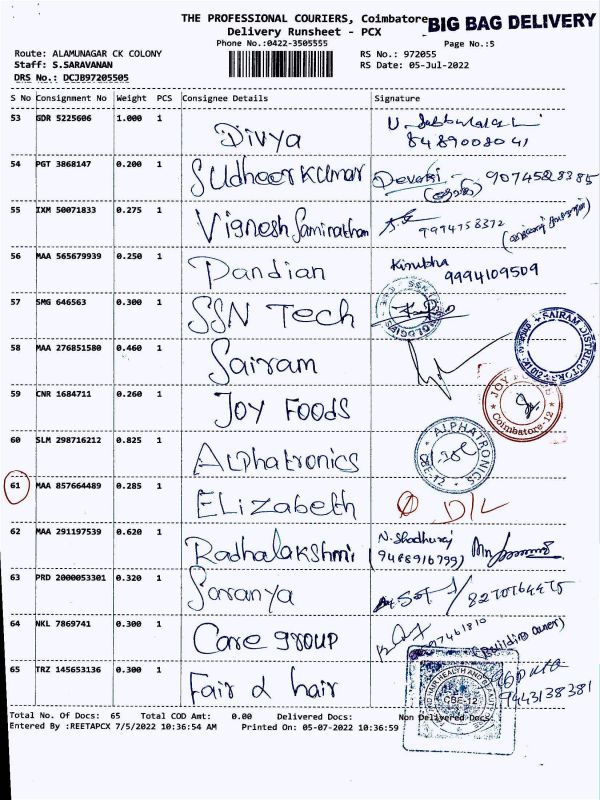 THE PROFESSIONAL COURIERS, Coimbatore BIG BAG DELIVERY
Delivery Runsheet - PCX
Phone No.:0422-3505555 Page No.:5
Route: ALAMUNAGAR CK COLONY RS No.: 972055
Staff: S.SARAVANAN RS Date: 05-Jul-2022
DRS No.: DCJB97205505
S No Consignment No Weight PCS Consignee Details Signature
53 GDR 5225606 1.000 1 Divya
8489008041
54 PGT 3868147 0.200 1 Sudheerkumar Devaki 9074528385
55 IXM 50071833 0.275 1 Vignesh Saminathan 9994758372
56 MAA 565679939 0.250 1 Pandian Kirubha 9994109509
57 SMG 646563 0.300 1 SSN Tech
58 MAA 276851580 0.460 1 Sairam SAIRAM DISTRIBUTORS
59 CNR 1684711 0.260 1 Joy Foods JOY Coimbatore-12
60 SLM 298716212 0.825 1 Alphatronics ALPHATRONICS CBE-12
61 MAA 857664489 0.285 1 Elizabeth D/L
62 MAA 291197539 0.620 1 Radhalakshmi (9488916799)
63 PRD 2000053301 0.320 1 Saranya
64 NKL 7869741 0.300 1 Care group (Building owner)
65 TRZ 145653136 0.300 1 Fair & hair CBE-12 9443138381
Total No. Of Docs: 65 Total COD Amt: 0.00 Delivered Docs: Non Delivered Docs:
Entered By :REETAPCX 7/5/2022 10:36:54 AM Printed On: 05-07-2022 10:36:59